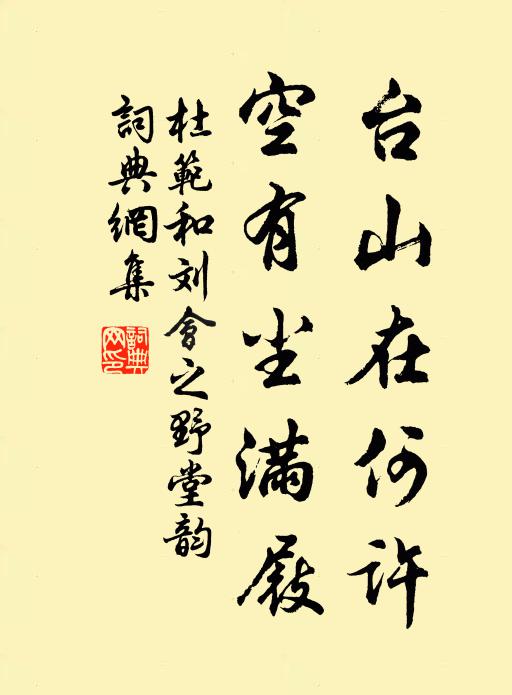 台山在何许
空有尘满屐
杜範和刘會之野堂韵
詞典網集
詞典
网印